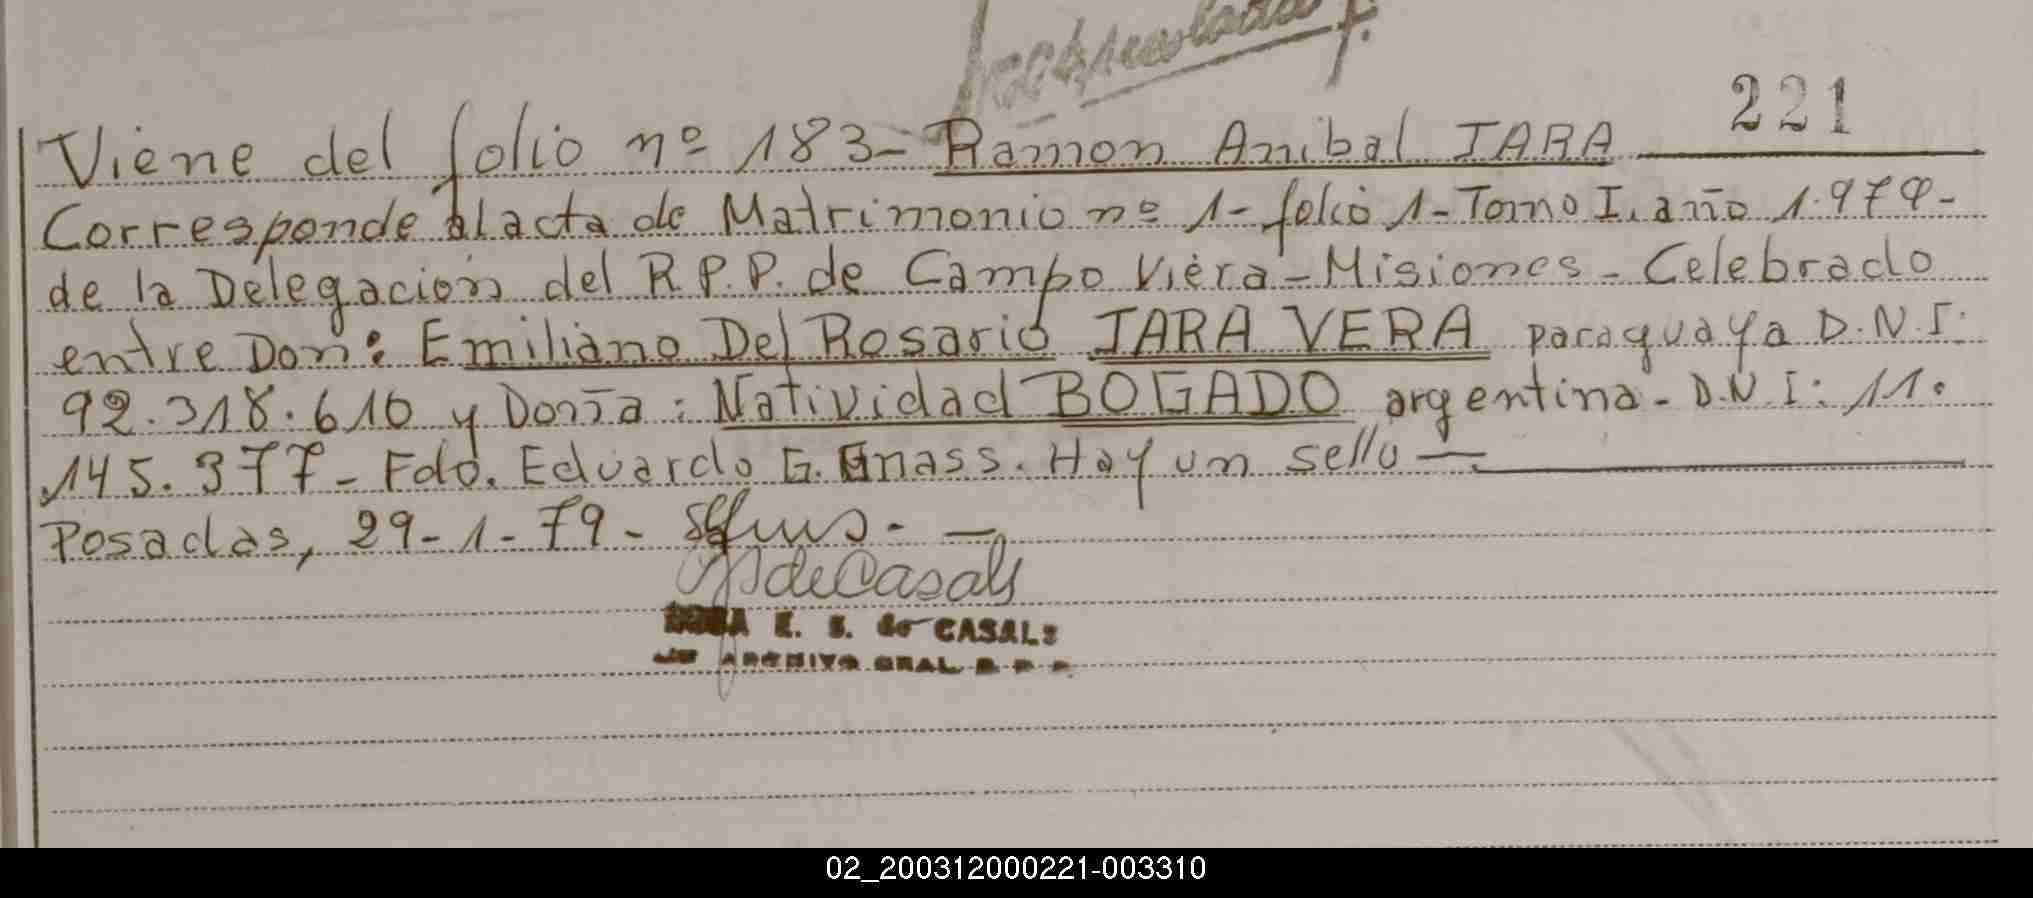 221
Viene del folio nº 183- Ramon Anibal JARA
Corresponde al acta de Matrimonio nº 1- folio 1- Tomo I. año 1.979-
de la Delegación del R.P.P. de Campo Viera - Misiones - Celebrado
entre Don: Emiliano Del Rosario JARA VERA paraguaya D.N.I:
92.318.610 y Doña: Natividad BOGADO argentina - D.N.I: 11.
145.377 - Fdo. Eduardo G. Gnass. Hay un sello -
Posadas, 29-1-79 -
de Casals
E. S. de CASALS
ARCHIVO GRAL R P P
02_200312000221-003310